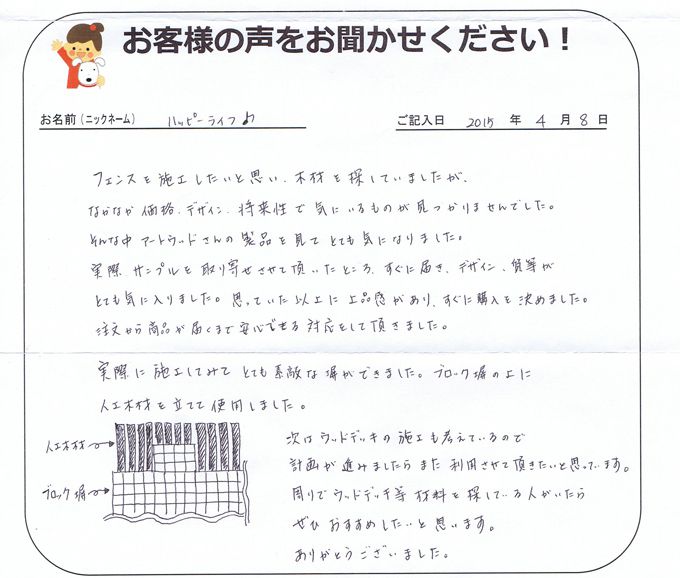 お客様の声をお聞かせください！
お名前(ニックネーム) ハッピーライフ♪ ご記入日 2015 年 4 月 8 日
フェンスを施工したいと思い、木材を探していましたが、
なかなか価格、デザイン、将来性で気にいるものが見つかりませんでした。
そんな中アートウッドさんの製品を見てとても気になりました。
実際、サンプルを取り寄せさせて頂いたところ、すぐに届き、デザイン、質等が
とても気に入りました。思っていた以上に上品感があり、すぐに購入を決めました。
注文から商品が届くまで安心できる対応をして頂きました。
実際に施工してみてとても素敵な塀ができました。ブロック塀の上に
人工木材を立てて使用しました。
人工木材
ブロック塀
次はウッドデッキの施工も考えているので
計画が進みましたらまた利用させて頂きたいと思っています。
周りでウッドデッキ等材料を探している人がいたら
ぜひおすすめしたいと思います。
ありがとうございました。